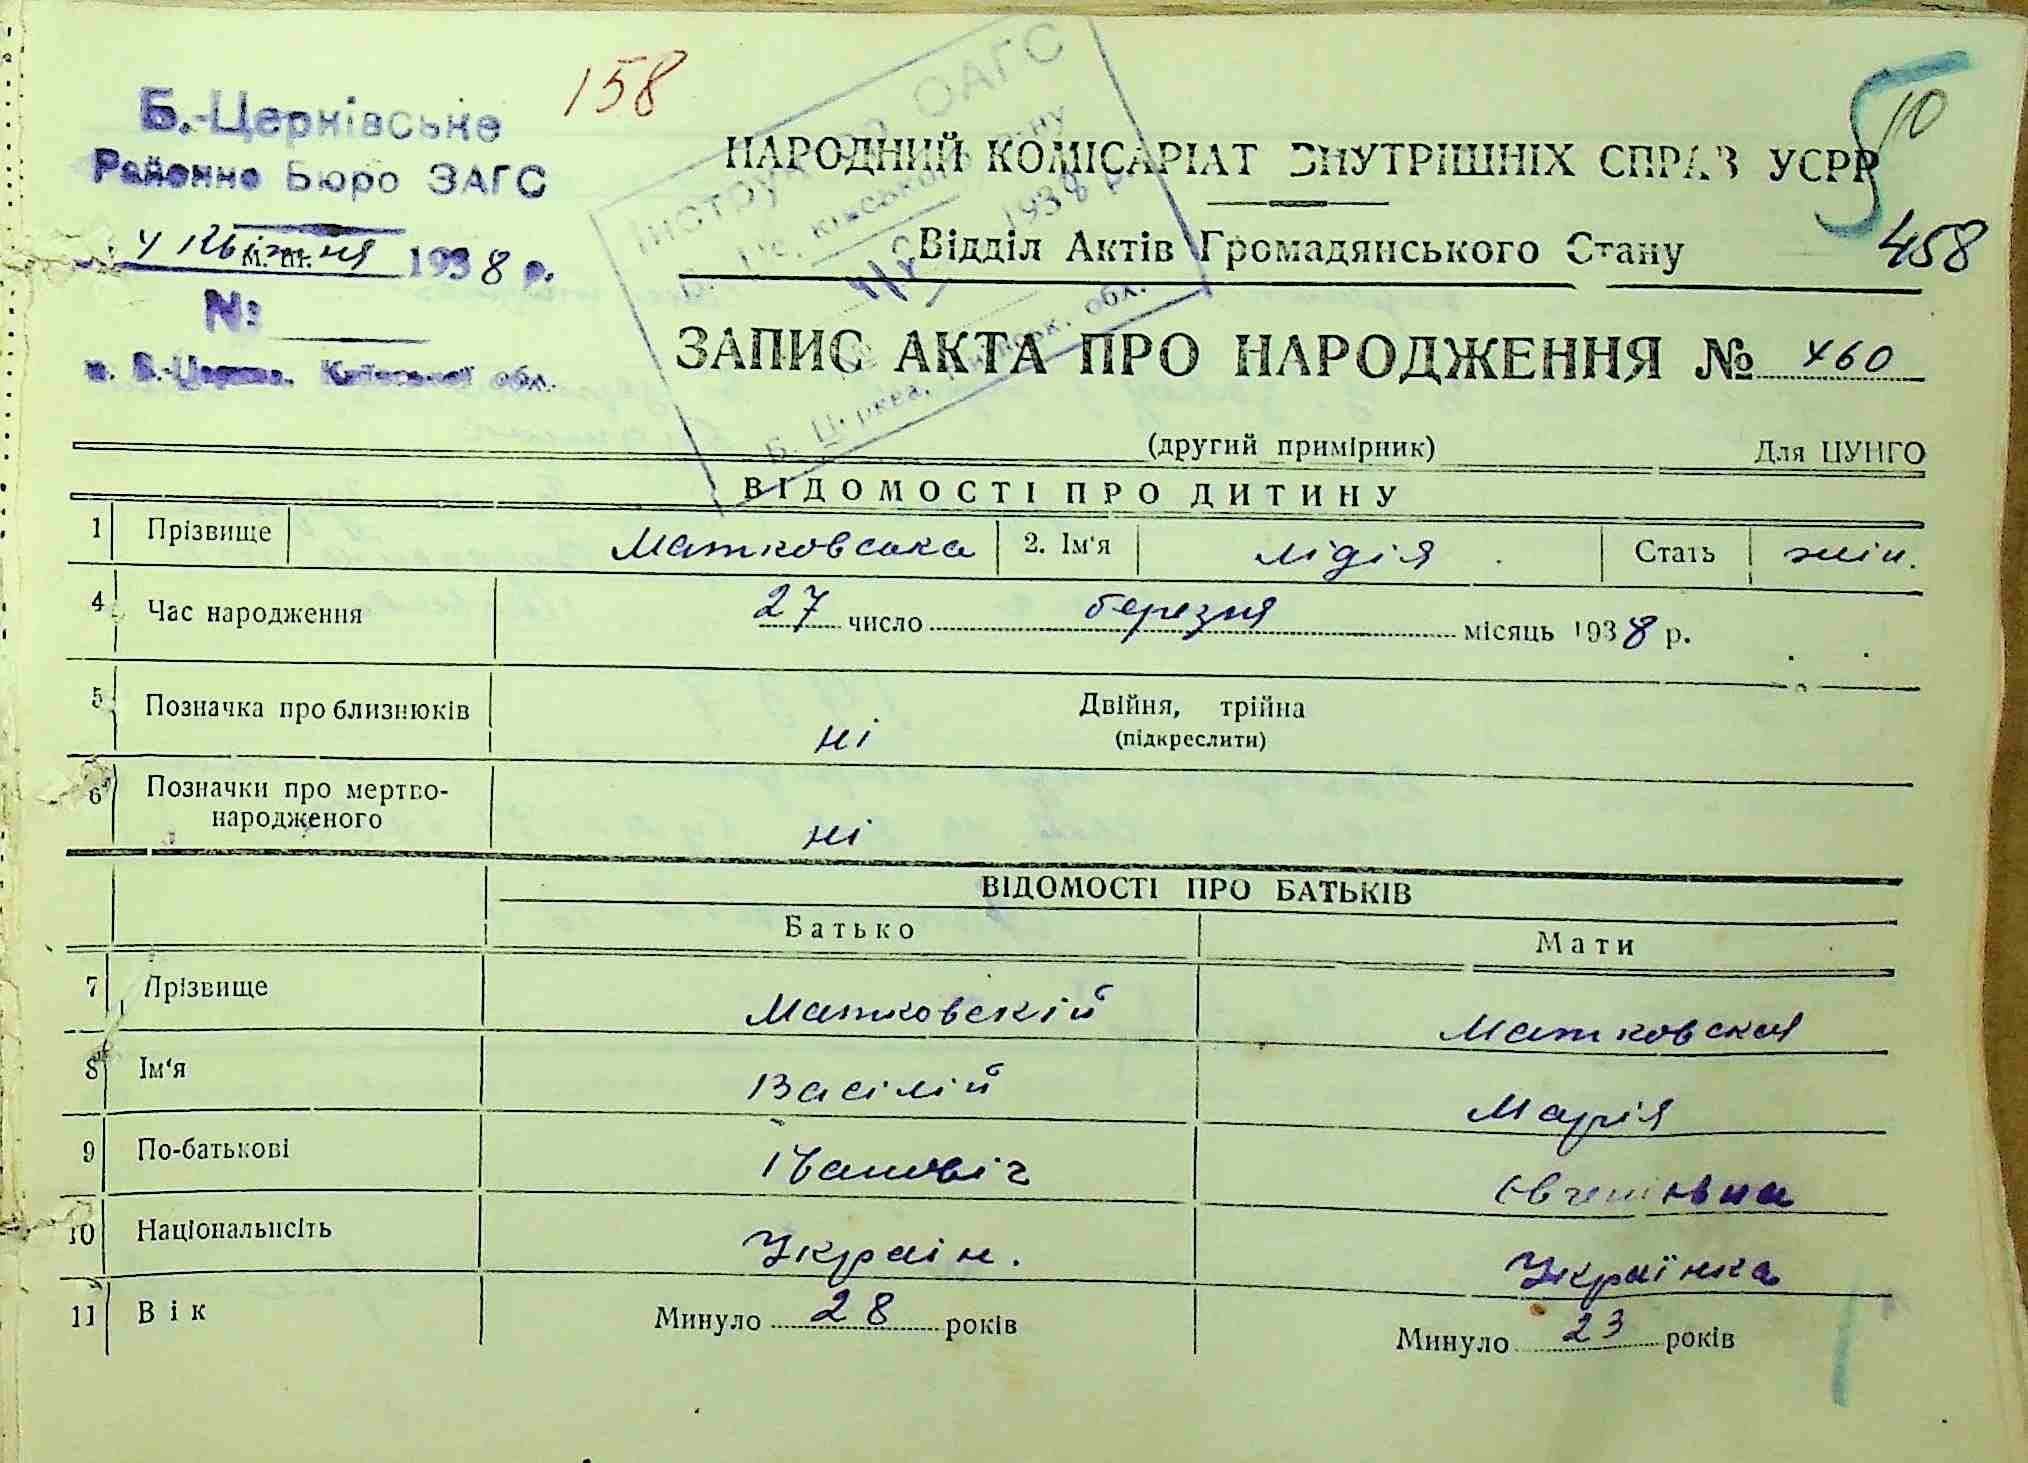 158
Б.-Церківське
Районне Бюро ЗАГС
4 квітня 1938 р.
№
м. Б.-Церква, Київської обл.
ОАГС
1938 р.
Б. Церква, обл.
10
НАРОДНИЙ КОМІСАРІАТ ВНУТРІШНІХ СПРАВ УСРР
Відділ Актів Громадянського Стану
458
ЗАПИС АКТА ПРО НАРОДЖЕННЯ № 460
(другий примірник) Для ЦУНГО
ВІДОМОСТІ ПРО ДИТИНУ
1 Прізвище Матковська 2. Ім'я Лідія Стать жін.
4 Час народження 27 число березня місяць 1938 р.
5 Позначка про близнюків ні Двійня, трійна
(підкреслити)
6 Позначки про мертво-
народженого ні
ВІДОМОСТІ ПРО БАТЬКІВ
Батько Мати
7 Прізвище Матковскій Матковская
8 Ім'я Васілій Марія
9 По-батькові Івановіч
10 Національність Украін. Українка
11 Вік Минуло 28 років Минуло 23 років